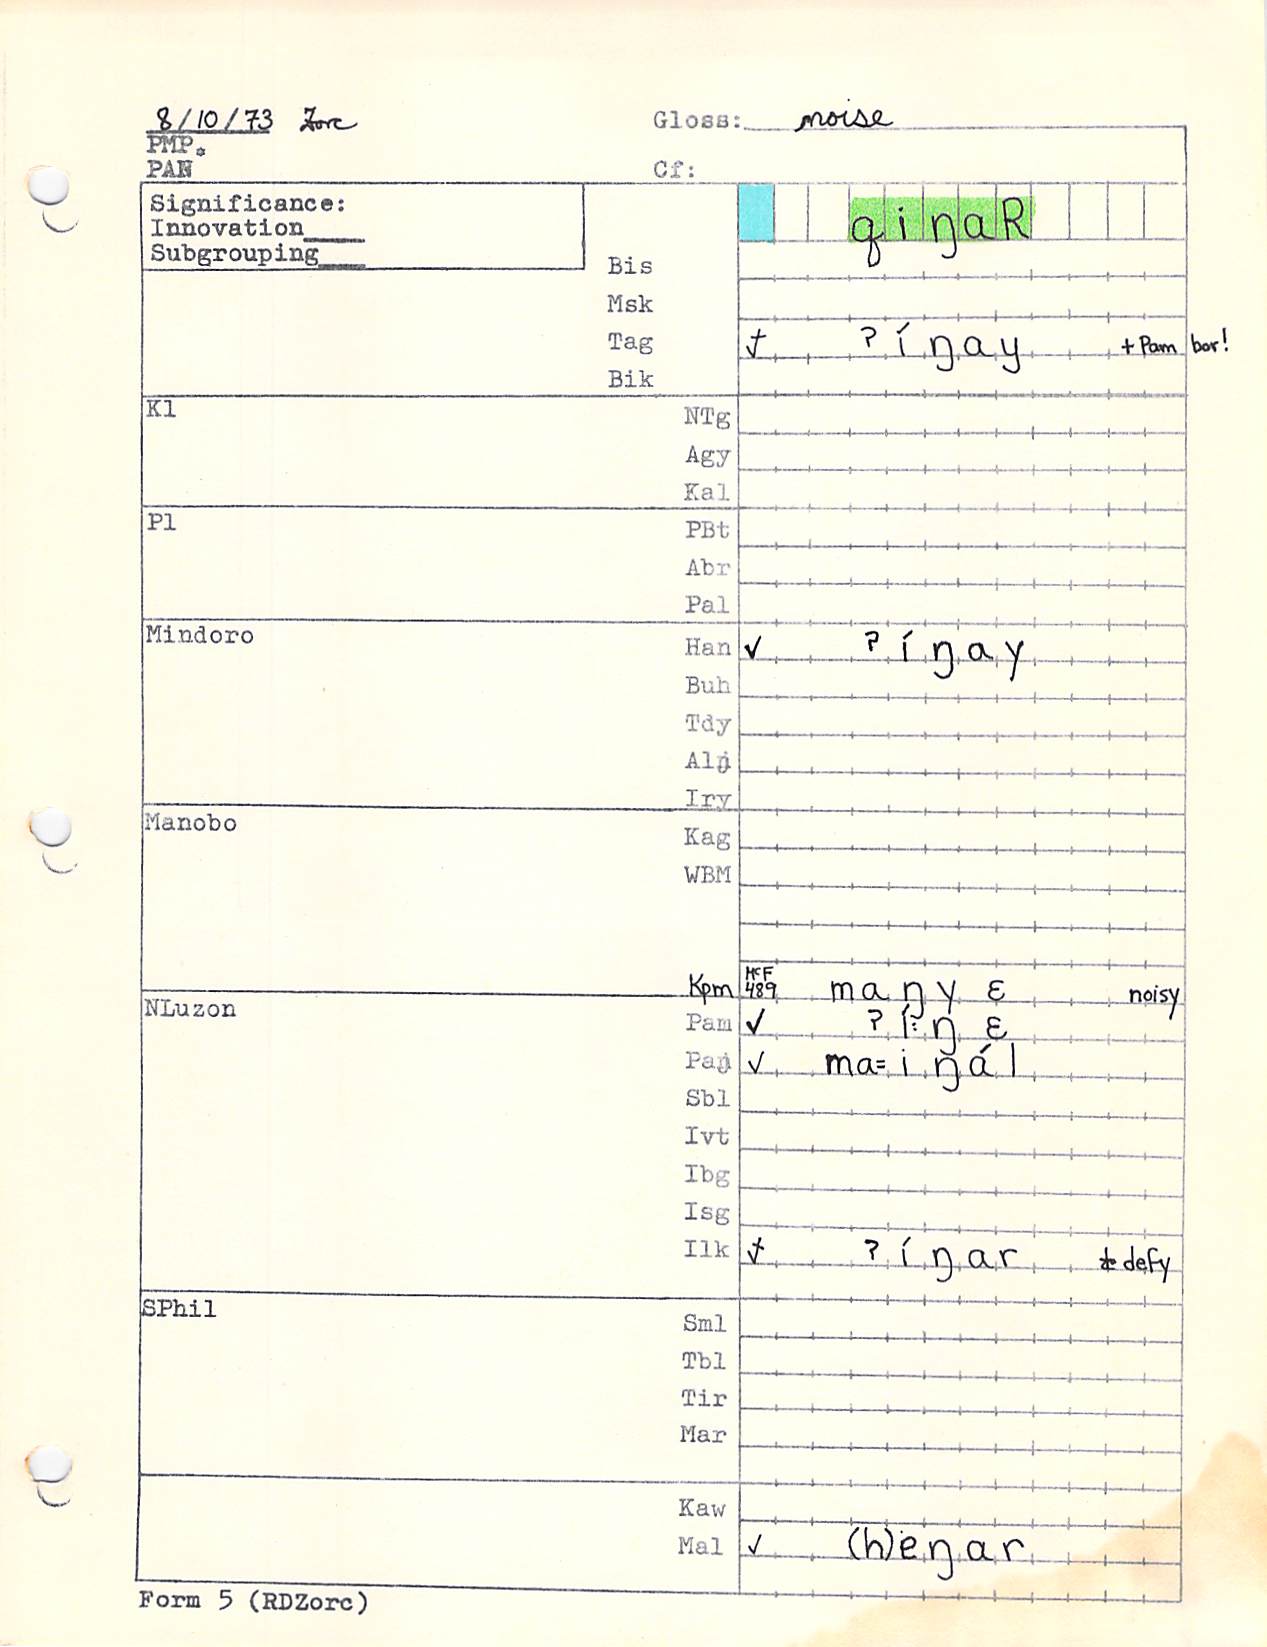 8/10/73 Zorc Gloss: noise
PMP.
PAN Cf:
Significance: qiŋaR
Innovation
Subgrouping
Bis
Msk
Tag ʔíŋay + Pam bor!
Bik
Kl NTg
Agy
Kal
Pl PBt
Abr
Pal
Mindoro Han ✓ ʔíŋay
Buh
Tdy
Alŋ
Iry
Manobo Kag
WBM
Kpm McF 489 maŋyɛ noisy
NLuzon
Pam ✓ ʔí:ŋɛ
Paŋ ✓ ma=iŋál
Sbl
Ivt
Ibg
Isg
Ilk ʔíŋar defy
SPhil
Sml
Tbl
Tir
Mar
Kaw
Mal ✓ (h)eŋar
Form 5 (RDZorc)